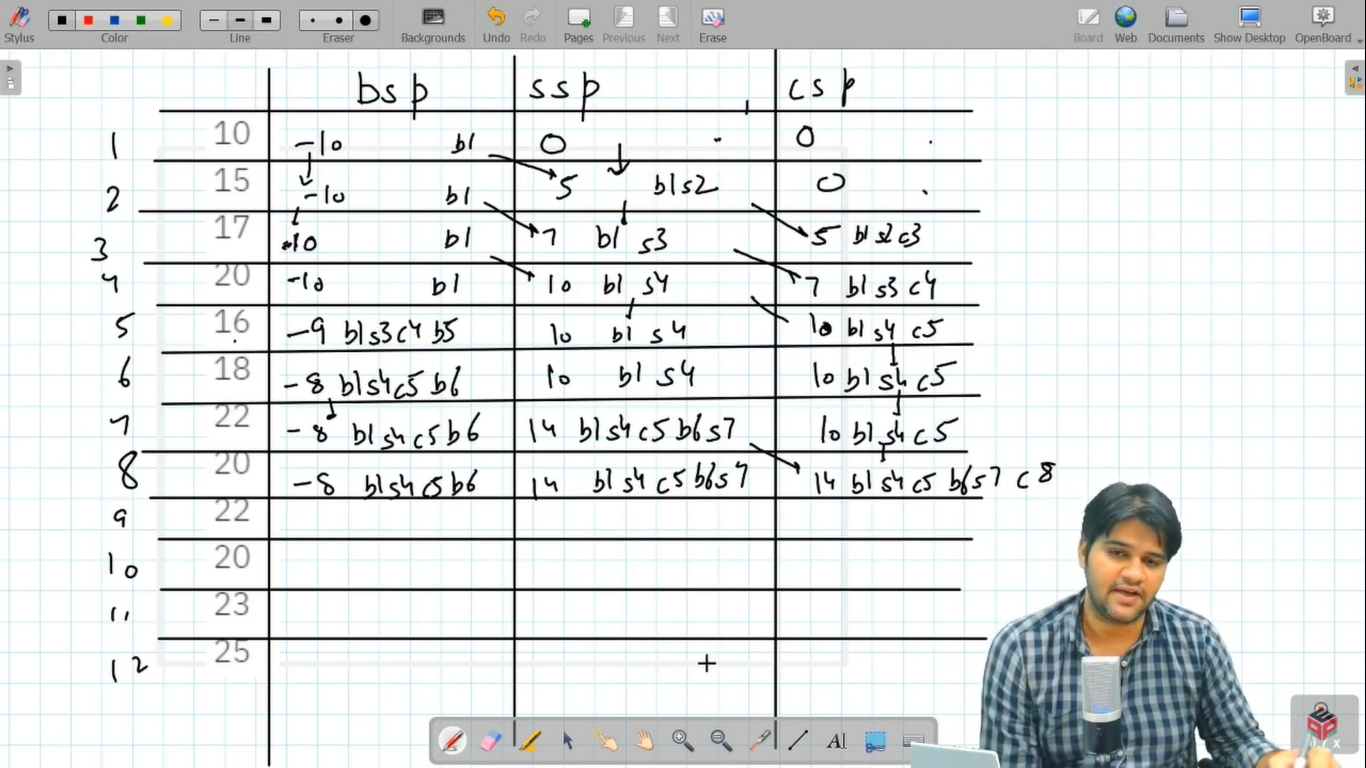 Stylus Color Line Eraser Backgrounds Undo Redo Pages Previous Next Erase Board Web Documents Show Desktop OpenBoard
bsp ssp csp
1 10 -10 b1 0 0
2 15 -10 b1 5 b1s2 0
3 17 -10 b1 7 b1 s3 5 b1s2c3
4 20 -10 b1 10 b1 s4 7 b1s3 c4
5 16 -9 b1s3c4 b5 10 b1 s4 10 b1s4 c5
6 18 -8 b1s4c5 b6 10 b1 s4 10 b1s4 c5
7 22 -8 b1s4c5b6 14 b1s4c5b6s7 10 b1s4c5
8 20 -8 b1s4c5b6 14 b1s4c5b6s7 14 b1s4c5 b6s7 c8
9 22
10 20
11 23
12 25